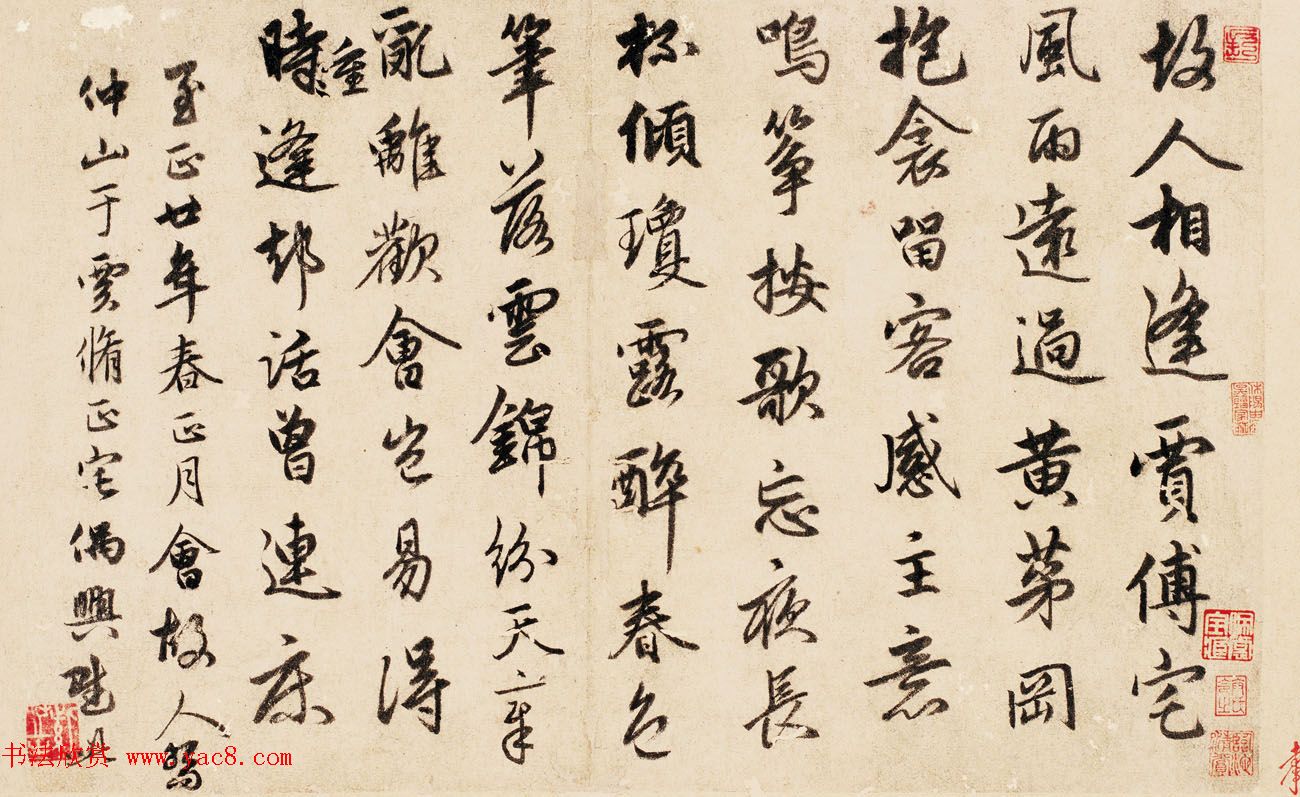 故人相逢賈傅宅
風雨遠過黃茅岡
抱衾留客感主意
鳴箏按歌忘夜長
杯傾瓊露醉春色
筆落雲錦紛天章
亂離歡會豈易得
時重逢却話曾連床
至正廿年春正月會故人
仲山于賈脩正宅偶興
书法欣赏 www.yac8.com